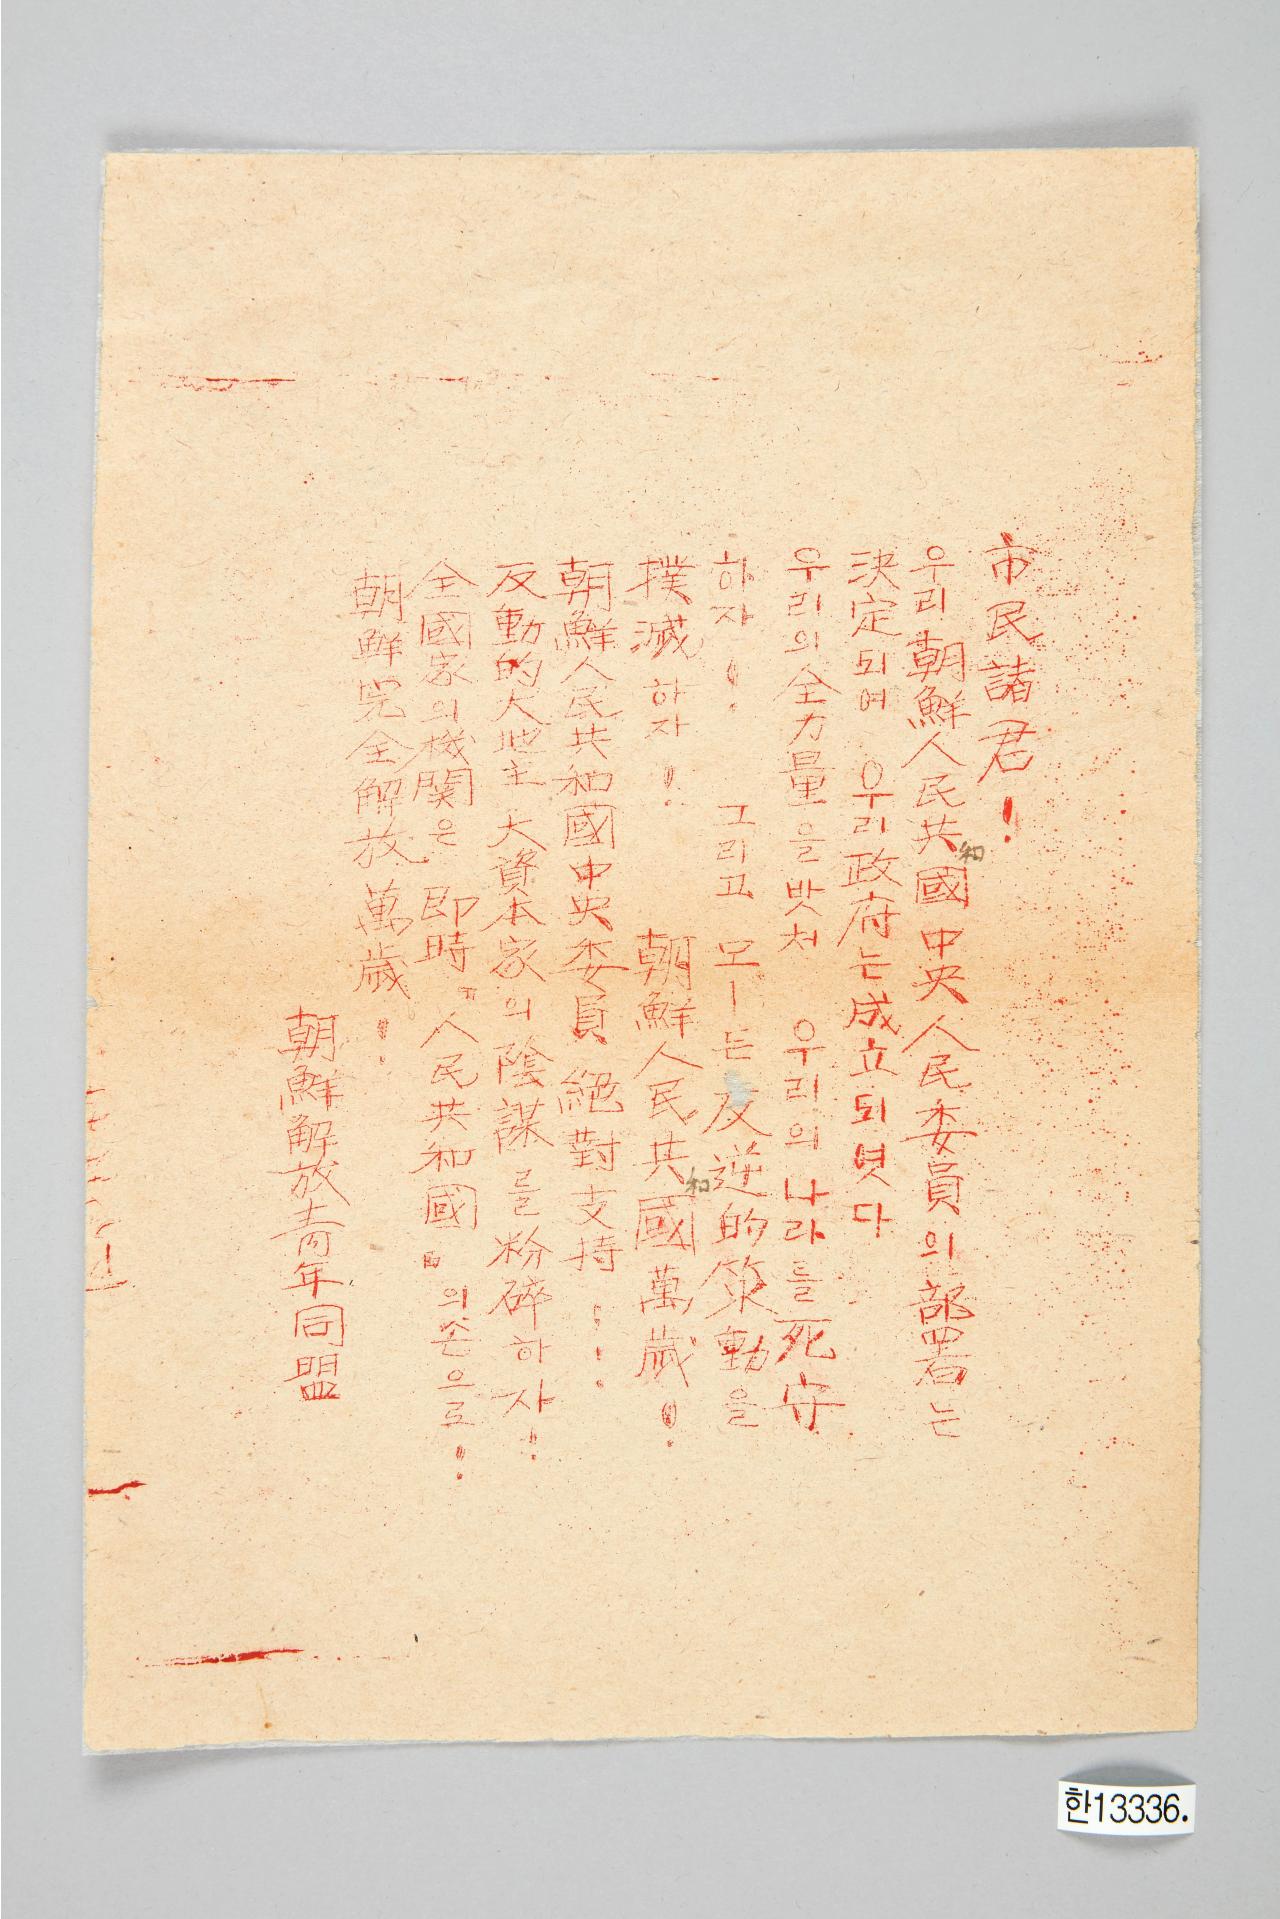 市民諸君！
우리朝鮮人民共和國中央人民委員의部署는
決定되여 우리政府는成立되엿다
우리의全力量을밧처 우리의나라를死守
하자！ 그리고 모ー든反逆的策動을
撲滅하자！ 朝鮮人民共和國萬歲！
朝鮮人民共和國中央委員絕對支持！！
反動的大地主大資本家의陰謀를粉碎하자！
全國家의機関은 即時"人民共和國"의손으로！
朝鮮完全解放萬歲！
朝鮮解放青年同盟
한13336.